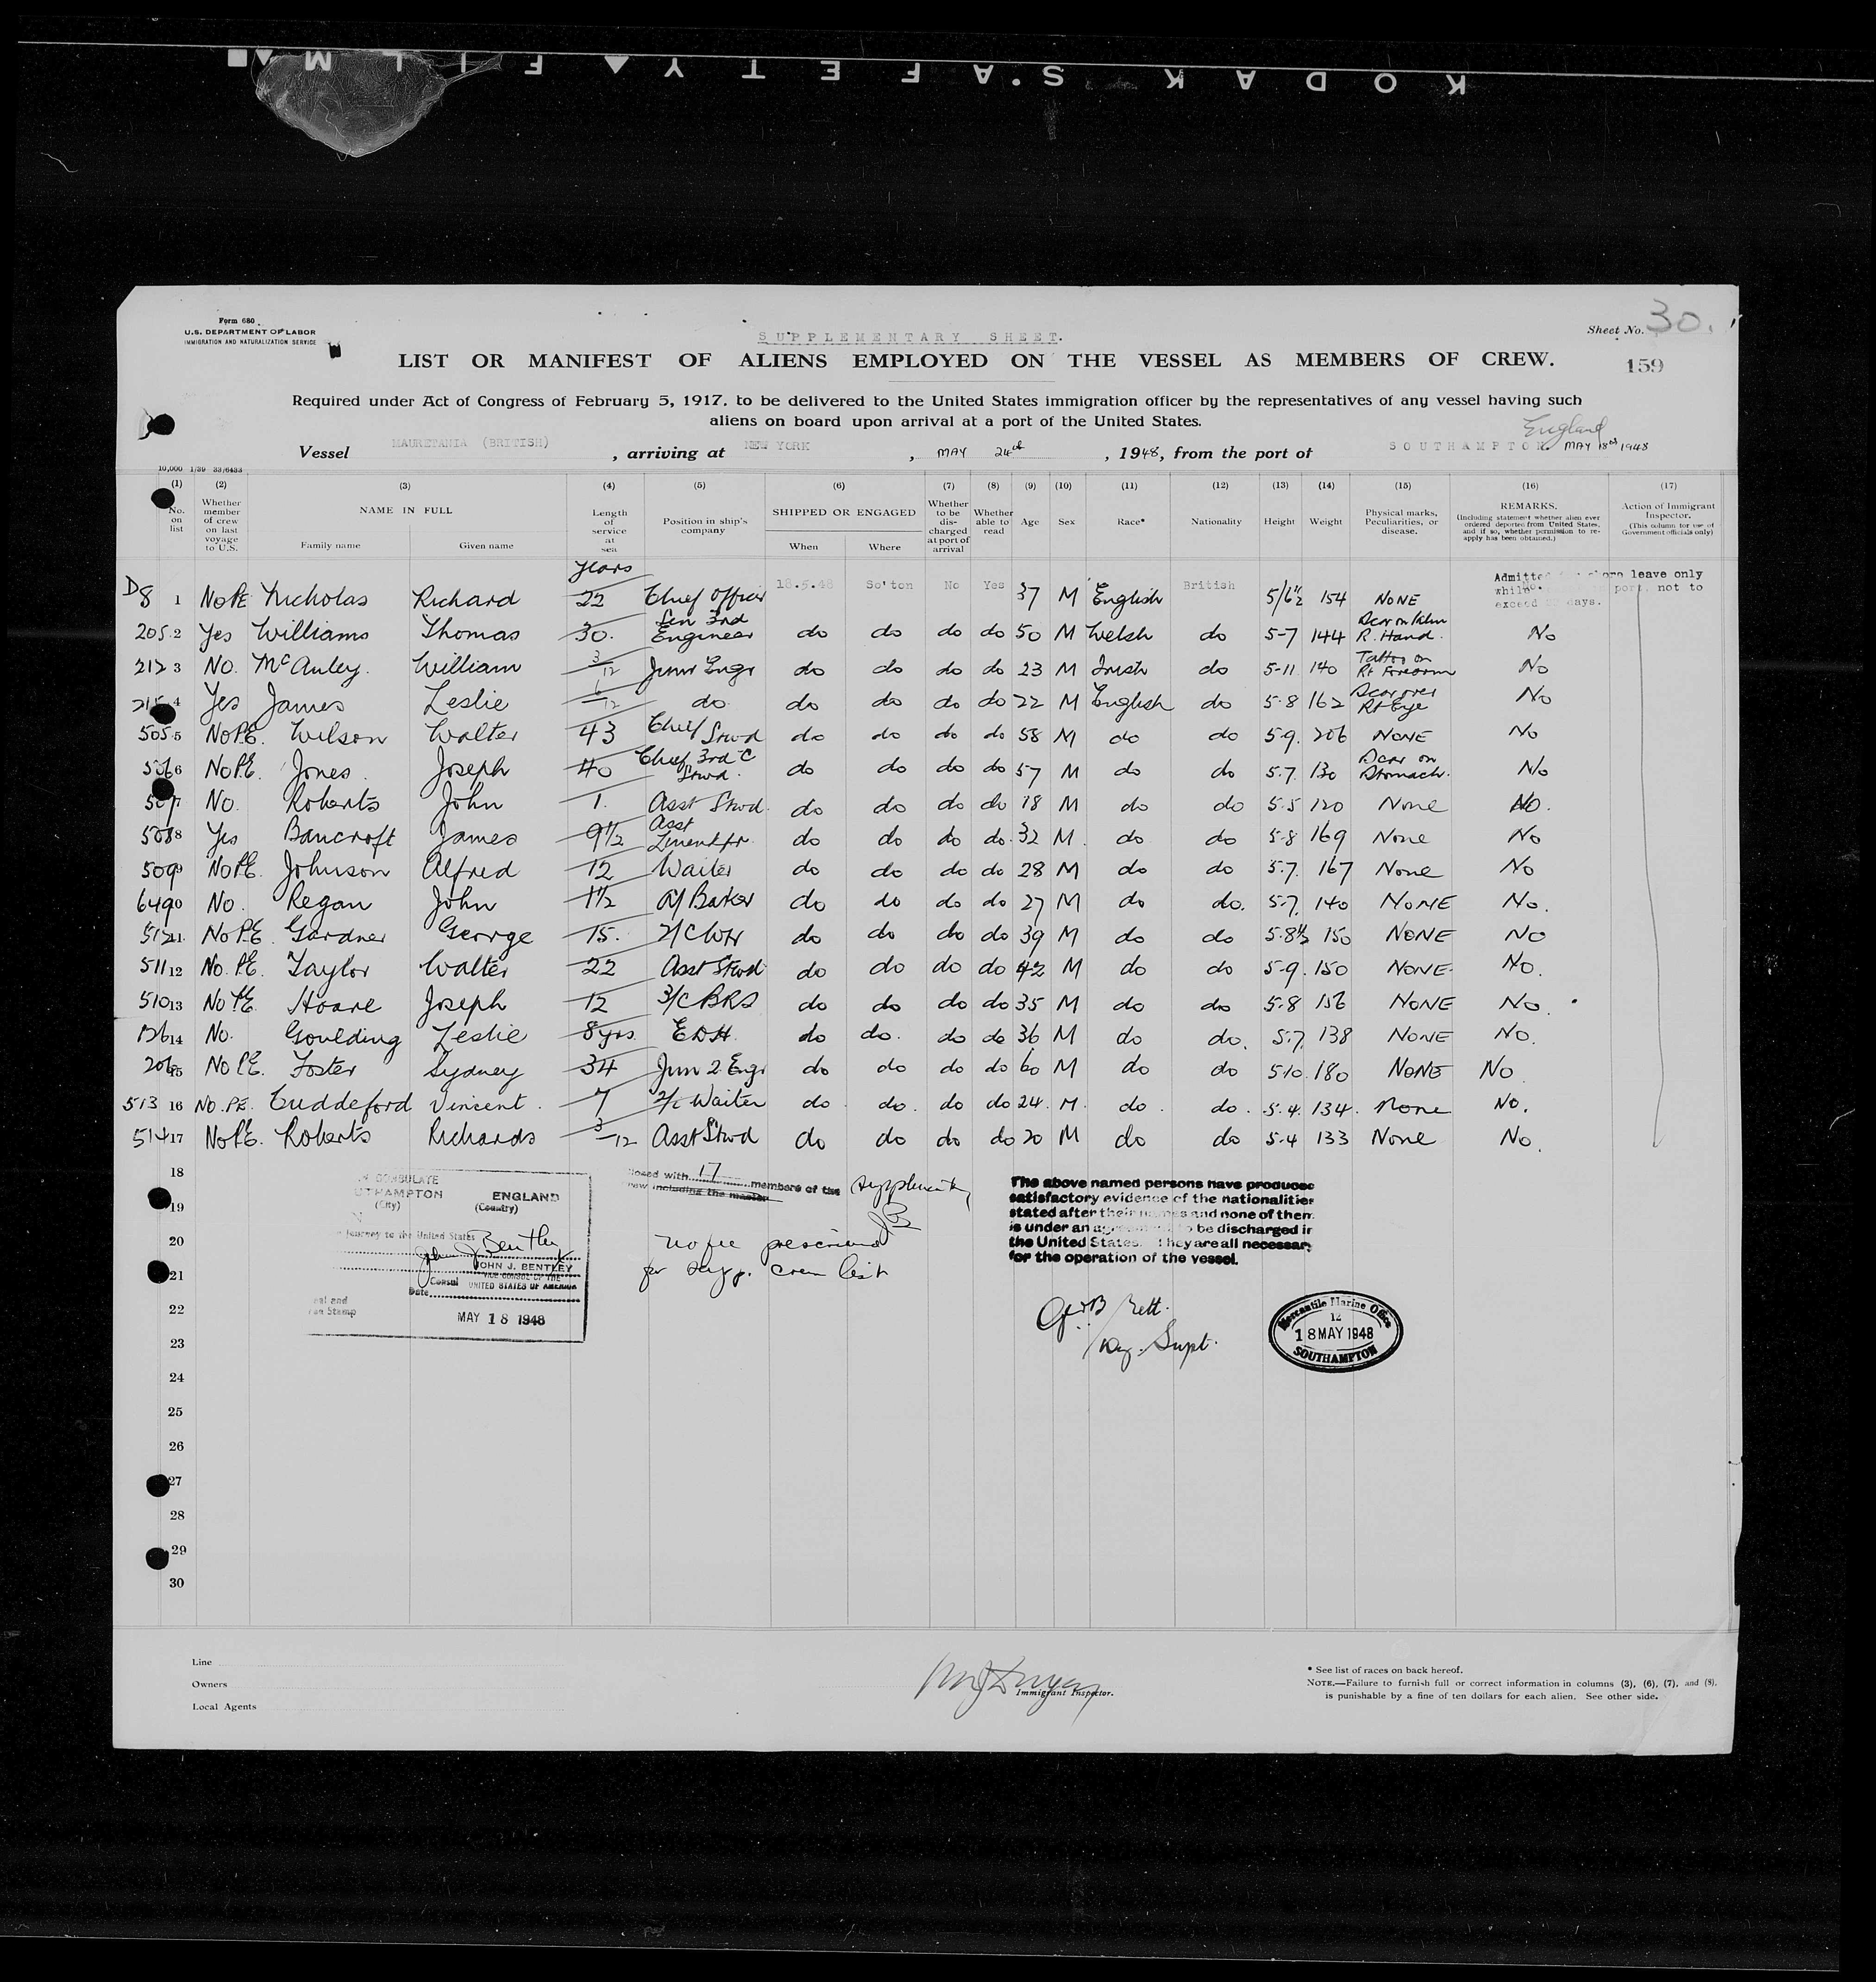 KODAK SAFETY FILM
Form 680
U.S. DEPARTMENT OF LABOR
IMMIGRATION AND NATURALIZATION SERVICE
SUPPLEMENTARY SHEET.
Sheet No. 30.
LIST OR MANIFEST OF ALIENS EMPLOYED ON THE VESSEL AS MEMBERS OF CREW.
159
Required under Act of Congress of February 5, 1917, to be delivered to the United States immigration officer by the representatives of any vessel having such
aliens on board upon arrival at a port of the United States.
England
Vessel MAURETANIA (BRITISH), arriving at NEW YORK, MAY 24th, 1948, from the port of SOUTHAMPTON. MAY 18th 1948
10,000 1/39 33/6433
(1) (2) (3) (4) (5) (6) (7) (8) (9) (10) (11) (12) (13) (14) (15) (16) (17)
No. on list
Whether member of crew on last voyage to U.S.
NAME IN FULL
Family name Given name
Length of service at sea
Position in ship's company
SHIPPED OR ENGAGED
When Where
Whether to be discharged at port of arrival
Whether able to read
Age Sex Race* Nationality Height Weight
Physical marks, Peculiarities, or disease.
REMARKS.
(Including statement whether alien ever ordered deported from United States, and if so, whether permission to re-apply has been obtained.)
Action of Immigrant Inspector.
(This column for use of Government officials only)
years
D8 1 No PE Nicholas Richard 22 Chief Officer 18.5.48 So'ton No Yes 37 M English British 5/6½ 154 NONE
Admitted shore leave only
while port, not to
exceed days.
205 2 Yes Williams Thomas 30. Sen 3rd Engineer do do do do 50 M Welsh do 5-7 144 Scar on Palm R. Hand. No
212 3 No. McAuley. William 3/12 Junr Engr do do do do 23 M Irish do 5-11 140 Tattoo on Rt Forearm No
4 Yes James Leslie 6/12 do do do do do 22 M English do 5-8 162 Scar over Rt Eye No
505 5 No P.E. Wilson Walter 43 Chief Stwd do do do do 58 M do do 5-9. 206 NONE No
506 6 No P.E. Jones Joseph 40 Chief 3rd C Stwd. do do do do 57 M do do 5.7. 130 Scar on Stomach. No
507 7 No. Roberts John 1. Asst Stwd. do do do do 18 M do do 5.5 120 None No.
508 8 Yes Bancroft James 9½ Asst Linenkpr do do do do 32 M. do do 5-8 169 None No
509 9 No P.E. Johnson Alfred 12 Waiter do do do do 28 M do do 5.7. 167 None No
649 10 No. Regan John 1½ A/ Baker do do do do 27 M do do. 5.7. 140 NONE No.
512 11 No P.E. Gardner George 15. 2/C Wtr do do do do 39 M do do 5.8½ 150 NONE NO
511 12 No. P.E. Taylor Walter 22 Asst Stwd do do do do 42 M do do 5-9. 150 NONE No.
510 13 No P.E. Hoare Joseph 12 3/C BRS do do do do 35 M do do 5.8 156 NONE No.
136 14 No. Goulding Leslie 8 yrs EDH. do do. do do 36 M do do. 5.7 138 NONE No.
206 15 No P.E. Foster Sydney 34 Jun 2. Engr do do do do 60 M do do 5.10. 180 NONE No
513 16 NO. PE. Cuddeford Vincent. 7 2/c Waiter do do. do do 24. M. do. do. 5.4. 134. None No.
514 17 No P.E. Roberts Richards 3/12 Asst Stwd do do do do 20 M do do 5.4 133 None No.
18
19
20
21
22
23
24
25
26
27
28
29
30
CONSULATE
SOUTHAMPTON ENGLAND
(City) (Country)
Journey to the United States
John J Bentley
JOHN J. BENTLEY
VICE CONSUL OF THE
Consul UNITED STATES OF AMERICA
Date
MAY 18 1948
Closed with 17 members of the supplementary
crew including the master
JB
No fee prescribed
for supp. crew list
The above named persons have produced
satisfactory evidence of the nationalities
stated after their names and none of them
is under an agreement to be discharged in
the United States. They are all necessary
for the operation of the vessel.
Dep. Supt.
Mercantile Marine Office
12
18 MAY 1948
SOUTHAMPTON
Line
Owners
Local Agents
Immigrant Inspector.
* See list of races on back hereof.
NOTE.—Failure to furnish full or correct information in columns (3), (6), (7), and (8),
is punishable by a fine of ten dollars for each alien. See other side.